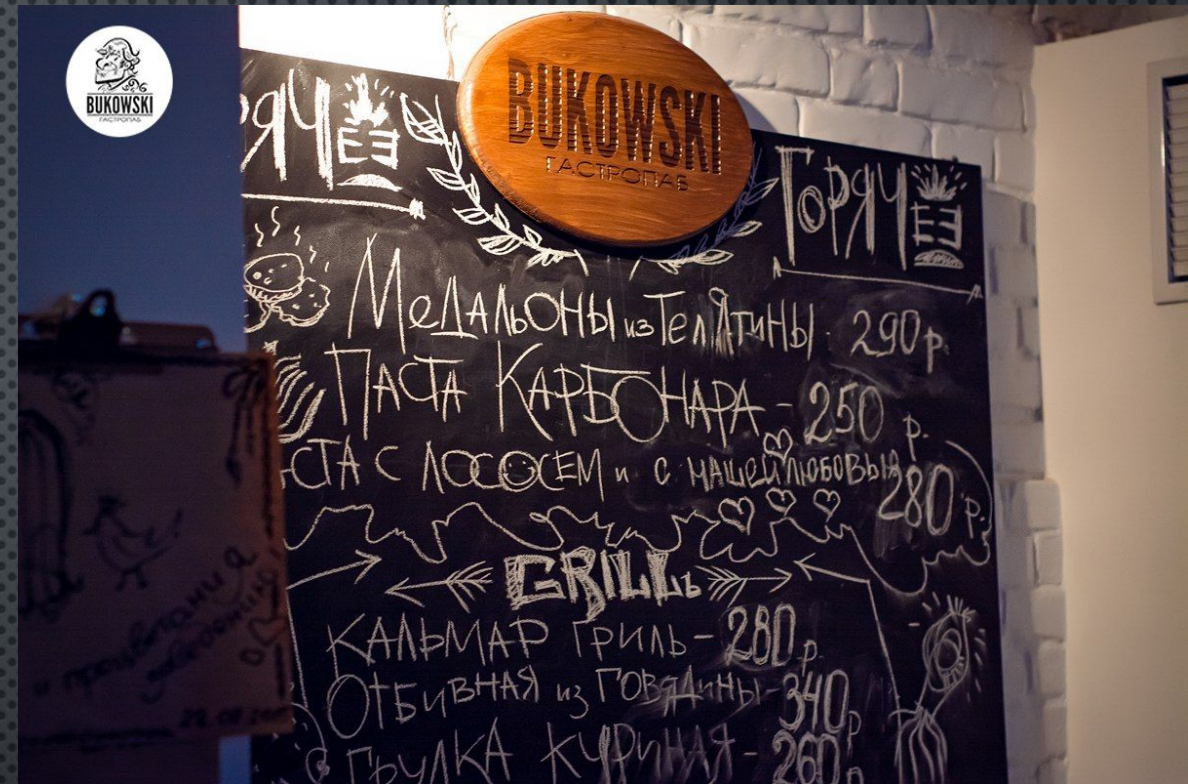 BUKOWSKI
ГАСТРОПАБ
BUKOWSKI
ГАСТРОПАБ
РЯЧЕЕ
ГОРЯЧЕЕ
МЕДАЛЬОНЫ ИЗ ТЕЛЯТИНЫ - 290 р.
ПАСТА КАРБОНАРА - 250 р.
СТА С ЛОСОСЕМ и С НАШЕЙ ЛЮБОВЬЮ 280 р.
GRILLь
КАЛЬМАР ГРИЛЬ - 280 р.
ОТБИВНАЯ ИЗ ГОВЯДИНЫ - 340 р
ГРУДКА КУРИНАЯ - 260 р
и процветания